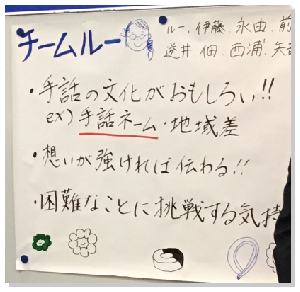 チームルー
ルー、伊藤、永田、前
逆井 佃 西浦、矢
・手話の文化がおもしろい!!
ex) 手話ネーム・地域差
・想いが強ければ伝わる!!
・困難なことに挑戦する気持